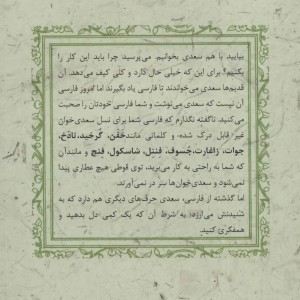 بیایید با هم سعدی بخوانیم. می‌پرسید چرا باید این کار را
بکنیم؟ برای این که خیلی حال دارد و کلی کیف می‌دهد. آن
قدیم‌ها سعدی می‌خواندند تا فارسی یاد بگیرند اما امروز فارسی
آن نیست که سعدی می‌نوشت و شما فارسی خودتان را صحبت
می‌کنید. ناگفته نگذارم که فارسی شما برای نسل سعدی‌خوان
غیر قابل درک شده، و کلماتی مانند خفن، گرخید،
جوات، زاغارت، جُسوف، فنتل، شاسکول، فنچ و مانندآن
که شما به راحتی به کار می‌برید، توی قوطی هیچ عطاری پیدا
نمی‌شود و سعدی‌خوان‌ها سر در نمی‌آورند.
اما گذشته از فارسی، سعدی حرف‌های دیگری هم دارد که به
شنیدنش می‌ارزد، به شرط آن که یک کمی دل بدهید و
همفکری کنید.